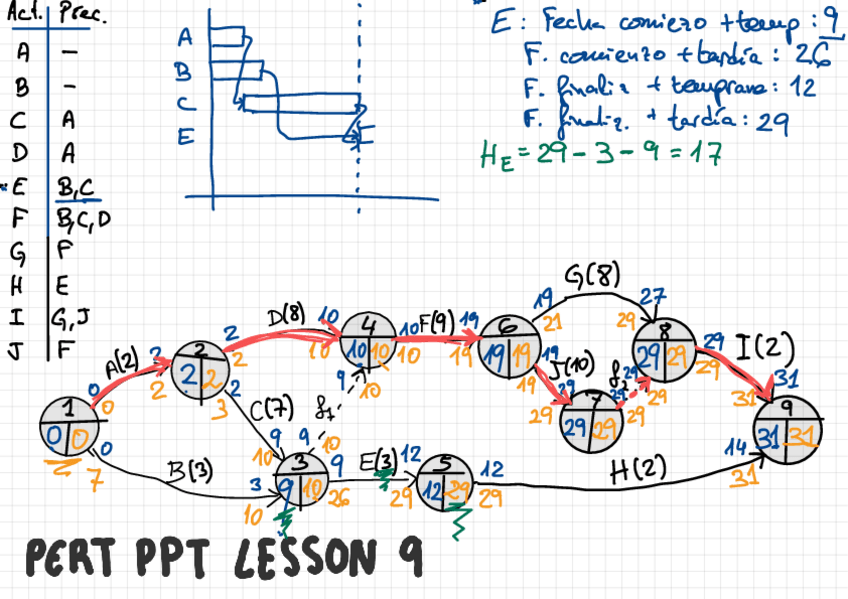 Act. Prec.
A –
B –
C A
D A
E B,C
F B,C,D
G F
H E
I G,J
J F
A
B
C
E
E: Fecha comiezo + temp: 9
F. comienzo + tardía: 26
F. finaliz + temprana: 12
F. finaliz. + tardía: 29
H_E = 29 - 3 - 9 = 17
G(8)
19 27
21 29
D(8) 10 4 10 F(9) 19 6 8 29 I(2)
2 2 10 10 10 10 19 19 19 29 29 29 31
A(2) 2 2 19 J(10) f2 29 31
0 2 2 2 19 29 7 29 29 9
1 0 3 C(7) 9 f1 10 29 29 29 29 31 31
0 0 0 9 9 10 14
7 B(3) 10 3 9 E(3) 12 5 12 H(2) 31
3 9 10 26 29 12 29 29
10
PERT PPT LESSON 9